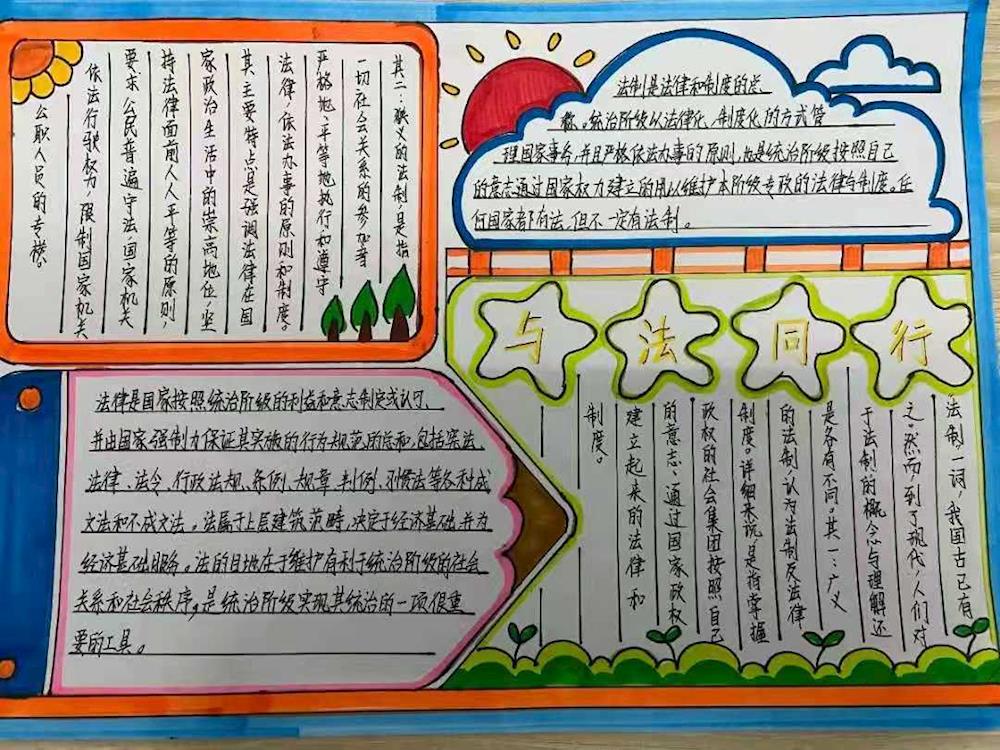 法制是法律和制度的总
称。统治阶级以法律化、制度化的方式管
理国家事务,并且严格依法办事的原则,也是统治阶级按照自己
的意志通过国家权力建立的用以维护本阶级专政的法律与制度。任
何国家都有法,但不一定有法制。
与法同行
法制一词,我国古已有
之。然而,到了现代,人们对
于法制的概念与理解还
是各有不同。其一:广义
的法制,认为法制反法律
制度。详细来说,是指掌握
政权的社会集团按照自己
的意志、通过国家政权
建立起来的法律和
制度。
其二:狭义的法制,是指
一切社会关系的参加者
严格地、平等地执行和遵守
法律,依法办事的原则和制度。
其主要特点是强调法律在国
家政治生活中的崇高地位,坚
持法律面前人人平等的原则,
要求公民普遍守法,国家机关
依法行驶权力,限制国家机关
公职人员的专横。
法律是国家按照统治阶级的利益和意志制定或认可、
并由国家强制力保证其实施的行为规范的总和,包括宪法、
法律、法令、行政法规、条例、规章、判例、习惯法等各种成
文法和不成文法。法属于上层建筑范畴,决定于经济基础,并为
经济基础服务。法的目地在于维护有利于统治阶级的社会
关系和社会秩序,是统治阶级实现其统治的一项很重
要的工具。